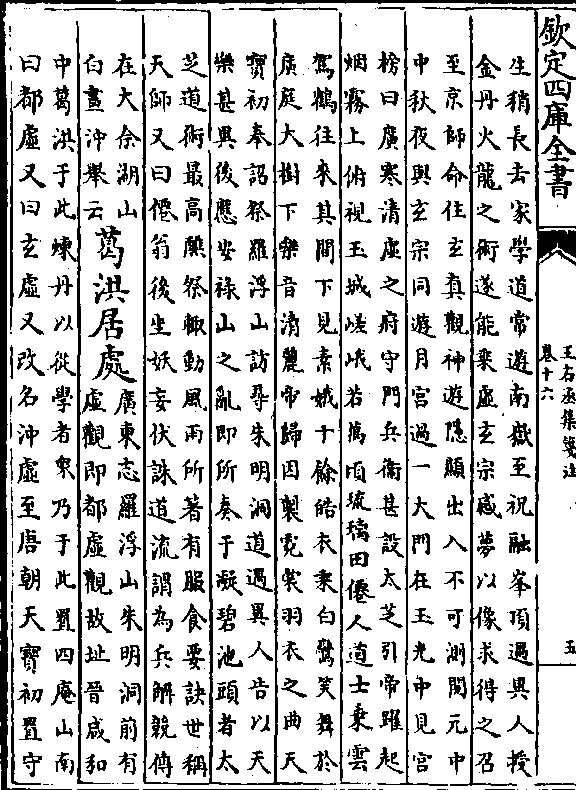 欽定四庫全書
王右丞集箋注
卷十六
五
生稍長去家學道常遊南嶽至祝融峯頂遇異人授
金丹火龍之術遂能乘虛玄宗感夢以像求得之召
至京師命住玄真觀神遊隱顯出入不可測開元中
中秋夜與玄宗同遊月宮過一大門在玉光中見宮
榜曰廣寒清虛之府守門兵衛甚設太芝引帝躍起
烟霧上俯視玉城嵯峨若萬頃琉璃田僊人道士乘雲
駕鶴往來其間下見素娥十餘皓衣乘白鸞笑舞於
廣庭大樹下樂音清麗帝歸因製霓裳羽衣之曲天
寶初奉詔祭羅浮山訪尋朱明洞道遇異人告以天
樂甚異後應安祿山之亂即所奏于凝碧池頭者太
芝道術最高醮祭輙動風雨所著有服食要訣世稱
天師又曰僊翁後坐妖妄伏誅道流謂為兵解競傳
在大奈湖山
白晝沖舉云
葛洪居處
廣東志羅浮山朱明洞前有
虛觀即都虛觀故址晉咸和
中葛洪于此煉丹以從學者衆乃于此置四庵山南
曰都虛又曰玄虛又改名沖虛至唐朝天寶初置守